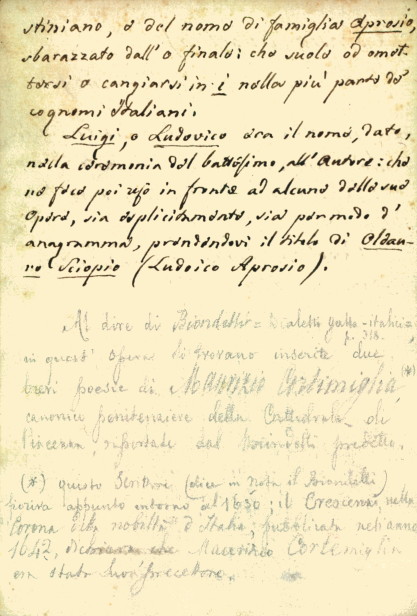 stiniano, o del nome di famiglia Aprosio,
sbarazzato dall'o finale: che suole od omet-
tersi o cangiarsi in i nella più parte de'
cognomi Italiani.
Luigi, o Ludovico era il nome, dato,
nella ceremonia del battesimo, all'Autore: che
ne fece poi uso in fronte ad alcuna delle sue
Opere, sia esplicitamente, sia per modo d'
anagramma, prendendovi il titolo di Oldau-
ro Sciopio (Ludoico Aprosio).
Al dire di Biondelli = Dialetti gallo-italici
p. 318.
in quest' opera si trovano inserite due
poesie di Maurizio Cortimiglia (*)
canonico penitenziere della Cattedrale di
Piacenza, riportate dal Biondelli predetto.
(*) questo Scrittore (dice in nota il Biondelli)
fioriva appunto intorno al 1650; il Crescenzi, nella
Corona della nobiltà d'Italia, pubblicata nell'anno
1642, che Maurizio Cortemiglia
era stato suo precettore.